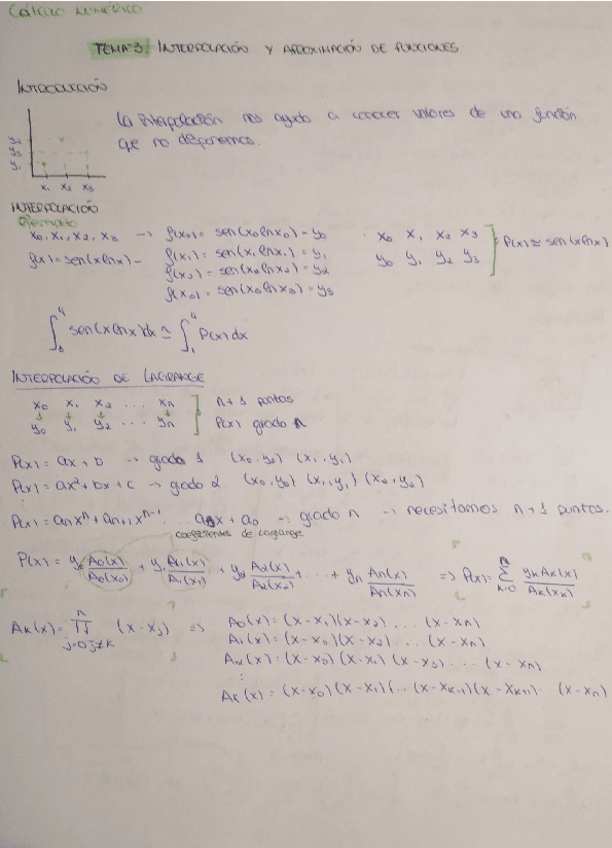 CÁLCULO NUMÉRICO
TEMA 3: INTERPOLACIÓN Y APROXIMACIÓN DE FUNCIONES
INTRODUCCIÓN
La interpolación nos ayuda a conocer valores de una función
que no disponemos.
y₂
y₃
y₁
x₁ x₂ x₃
INTERPOLACIÓN
Ejemplo
x₀, x₁, x₂, x₃ → f(x₀) = sen(x₀lnx₀) = y₀
f(x) = sen(xlnx) – f(x₁) = sen(x₁lnx₁) = y₁
f(x₂) = sen(x₂lnx₂) = y₂
f(x₃) = sen(x₃lnx₃) = y₃
x₀ x₁ x₂ x₃
y₀ y₁ y₂ y₃
P(x) ≈ sen(xlnx)
∫ sen(xlnx)dx ≃ ∫₁⁴ P(x)dx
INTERPOLACIÓN DE LAGRANGE
x₀ x₁ x₂ ... xₙ n+1 puntos
y₀ y₁ y₂ ... yₙ P(x) grado n
P(x) = ax + b → grado 1 (x₀, y₀) (x₁, y₁)
P(x) = ax² + bx + c → grado 2 (x₀, y₀) (x₁, y₁) (x₂, y₂)
P(x) = aₙxⁿ + aₙ₊₁xⁿ⁻¹ ... a₁x + a₀ → grado n → necesitamos n+1 puntos.
coeficientes de Lagrange
P(x) = y₀ A₀(x)/A₀(x₀) + y₁ A₁(x)/A₁(x₁) + y₂ A₂(x)/A₂(x₂) + ... + yₙ Aₙ(x)/Aₙ(xₙ) ⇒ P(x) = Σₖ₌₀ⁿ yₖAₖ(x)/Aₖ(xₖ)
Aₖ(x) = ∏ⁿ j=0 j≠k (x - xⱼ) ⇒ A₀(x) = (x-x₁)(x-x₂) ... (x-xₙ)
A₁(x) = (x-x₀)(x-x₂) ... (x-xₙ)
A₂(x) = (x-x₀)(x-x₁)(x-x₃) ... (x-xₙ)
⋮
Aₖ(x) = (x-x₀)(x-x₁)(...(x-xₖ₋₁)(x-xₖ₊₁) ... (x-xₙ)